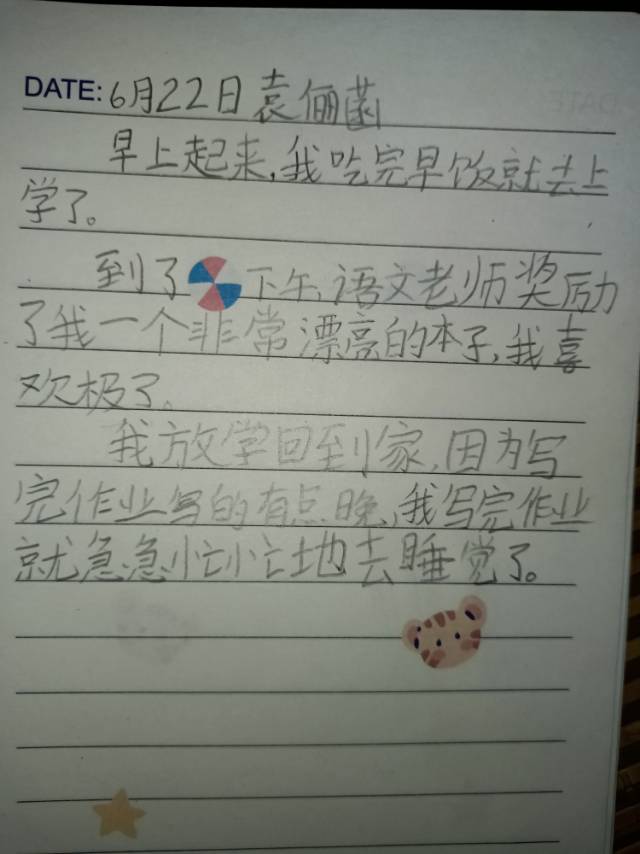 DATE: 6月22日袁俪菡
早上起来,我吃完早饭就去上
学了。
到了下午,语文老师奖励
了我一个非常漂亮的本子,我喜
欢极了。
我放学回到家,因为写
完作业写的有点晚,我写完作业
就急急忙忙地去睡觉了。